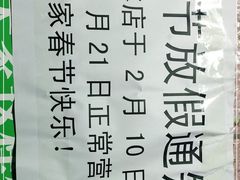 节放假通
店于 2 月 10 日
月 21 日正常营
家春节快乐！